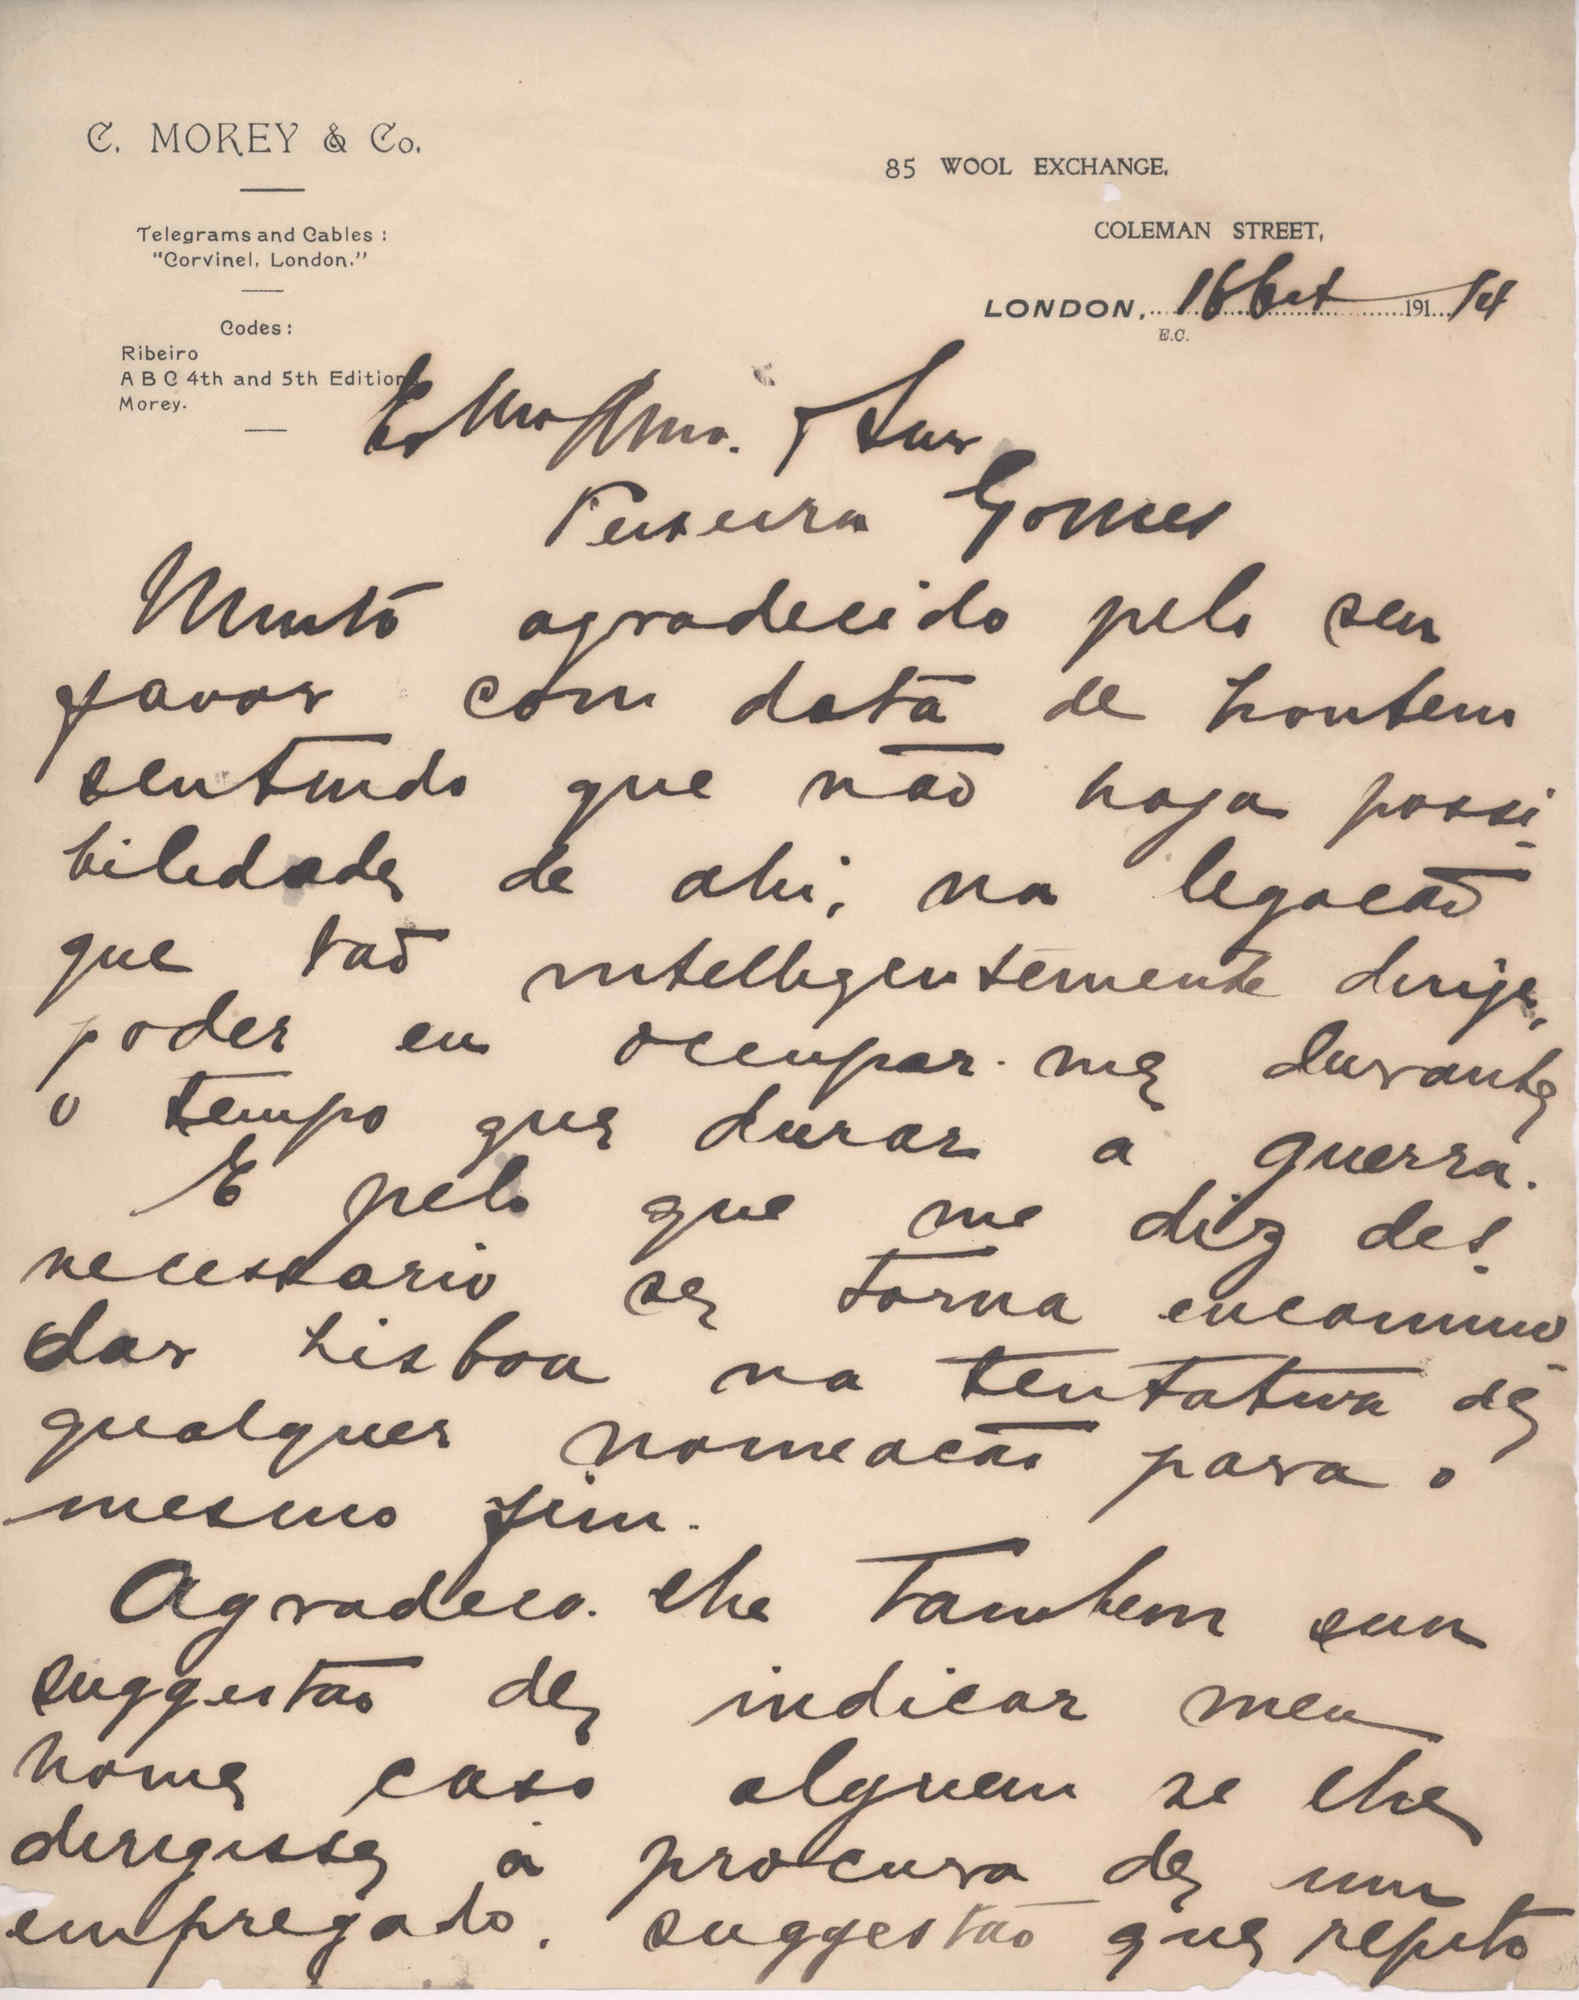 C. MOREY & Co.
Telegrams and Cables:
"Corvinel, London."
Codes:
Ribeiro
A B C 4th and 5th Edition
Morey.
85 WOOL EXCHANGE,
COLEMAN STREET,
LONDON, 16 Out 191 14
E.C.
Exmo Amo. &
Teixeira Gomes
Muito agradecido pelo seu
favor com data de hontem
sentindo que não haja possi-
bilidade de ahi, na legacão
que tão intelligentemente dirije,
poder eu occupar-me durante
o tempo que durar a guerra.
E pelo que me diz des-
necessario se torna encommo-
dar Lisboa na tentativa de
qualquer nomeacão para o
mesmo fim.
Agradeco-lhe tambem sua
suggestão de indicar meu
nome caso alguem se lhe
dirigisse à procura de um
empregado, suggestão que reputo